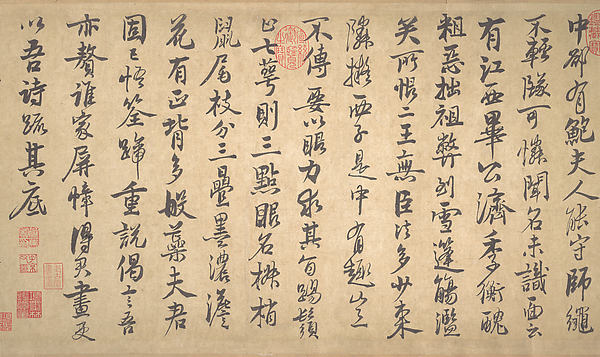 中郎有鮑夫人能守師繩
不輕墜可憐聞名未識面云
有江西畢公濟季衡醜
粗惡拙祖弊到雪篷觴濫
矣所恨二王無臣法多少東
隣擬西子是中有趣豈
不傳要以眼力求其旨踢鬚
止七萼則三點眼名椒梢
鼠尾枝分三疊墨濃澹
花有正背多般蘂夫君
固已悟筌蹄重說偈言吾
亦贅誰家屏幛得君畫更
以吾詩疏其底